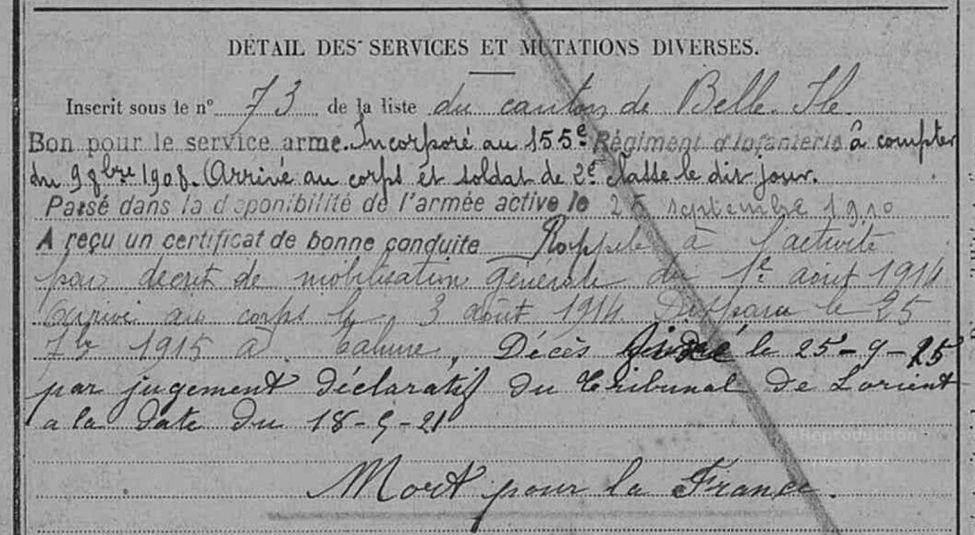 DÉTAIL DES SERVICES ET MUTATIONS DIVERSES.
Inscrit sous le n° 73 de la liste du canton de Belle-Ile
Bon pour le service armé. Incorporé au 155e Régiment d'Infanterie à compter
du 9 8bre 1908. (Arrivé au corps et soldat de 2e classe le dit jour.
Passé dans la disponibilité de l'armée active le 25 septembre 1910
A reçu un certificat de bonne conduite Rappelé à l'activité
par décret de mobilisation générale du 1er août 1914
Arrivé au corps le 3 août 1914 Disparu le 25
7bre 1915 à Tahure, Décès le 25-9-15
par jugement déclaratif du Tribunal de Lorient
a la date du 18-5-21
Mort pour la France.
Reproduction